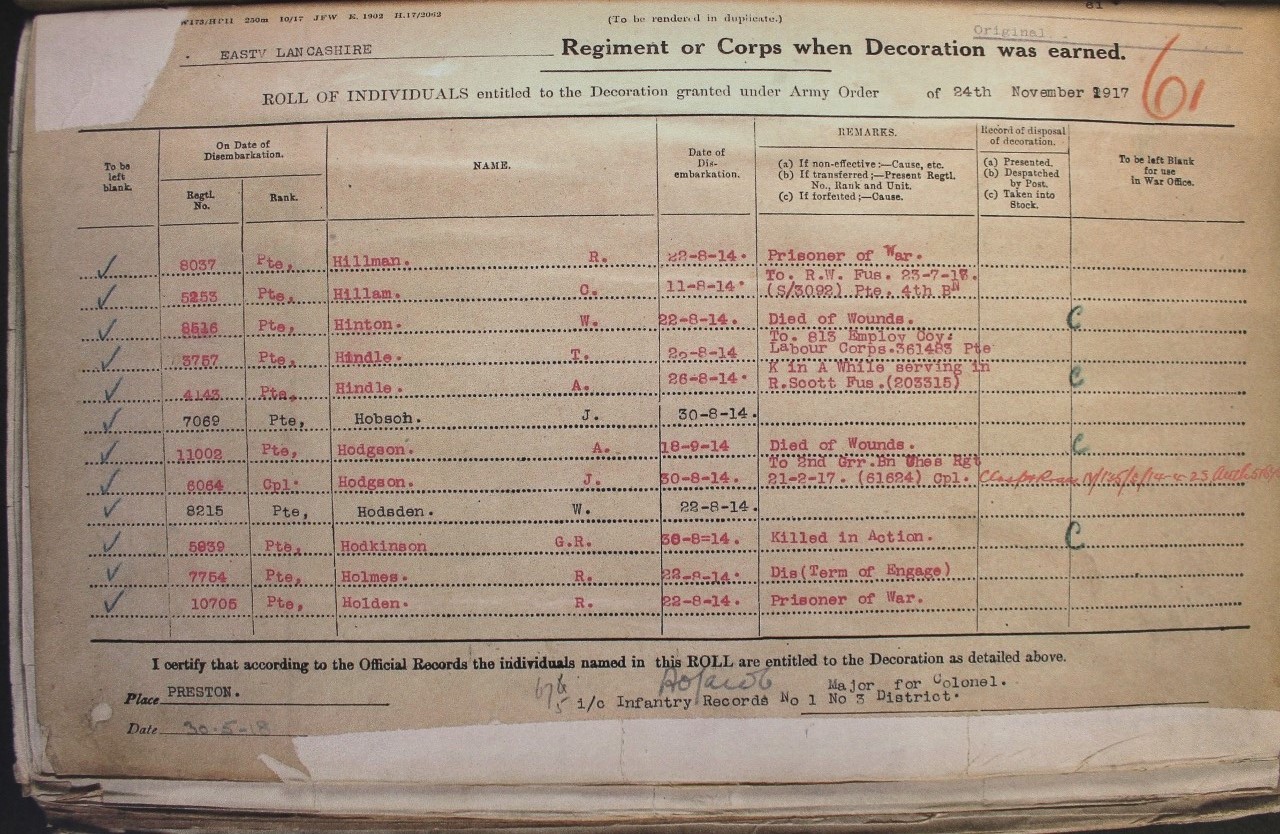 W173/HP11 250m 10/17 JFW E. 1902 H.17/2062
(To be rendered in duplicate.)
81
Original
EASTV LANCASHIRE Regiment or Corps when Decoration was earned.
61
ROLL OF INDIVIDUALS entitled to the Decoration granted under Army Order of 24th November 1917
To be left blank.
On Date of Disembarkation.
Regtl. No.
Rank.
NAME.
Date of Dis-embarkation.
REMARKS.
(a) If non-effective:—Cause, etc.
(b) If transferred;—Present Regtl. No., Rank and Unit.
(c) If forfeited;—Cause.
Record of disposal of decoration.
(a) Presented.
(b) Despatched by Post.
(c) Taken into Stock.
To be left Blank for use in War Office.
✓ 8037 Pte, Hillman. R. 22-8-14. Prisoner of War.
✓ 5253 Pte, Hillam. C. 11-8-14. To. R.W. Fus. 23-7-15.
(S/3092) Pte, 4th BN
✓ 8516 Pte, Hinton. W. 22-8-14. Died of Wounds. C
✓ 3757 Pte, Hindle. T. 20-8-14 To. 813 Employ Coy.
Labour Corps.361483 Pte
✓ 4143 Pte, Hindle. A. 26-8-14. K in A While serving in
R.Scott Fus.(203315) C
✓ 7069 Pte, Hobson. J. 30-8-14.
✓ 11002 Pte, Hodgson. A. 18-9-14 Died of Wounds. C
✓ 6064 Cpl. Hodgson. J. 30-8-14. To 2nd Grr.Bn Ches Rgt
21-2-17. (61624) Cpl.
✓ 8215 Pte, Hodsden. W. 22-8-14.
✓ 5939 Pte, Hodkinson G.R. 30-8=14. Killed in Action. C
✓ 7754 Pte, Holmes. R. 22-8-14. Dis(Term of Engage)
✓ 10705 Pte, Holden. R. 22-8-14. Prisoner of War.
I certify that according to the Official Records the individuals named in this ROLL are entitled to the Decoration as detailed above.
Place PRESTON.
Major for Colonel.
i/c Infantry Records No 1 No 3 District.
Date 30-5-18